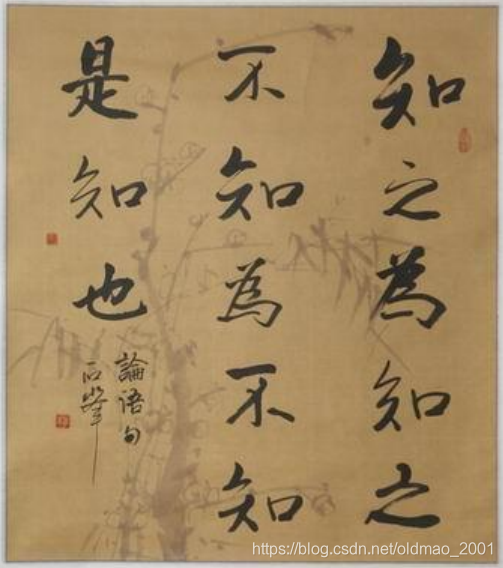 知之為知之
不知為不知
是知也
論語句
石峯
https://blog.csdn.net/oldmao_2001